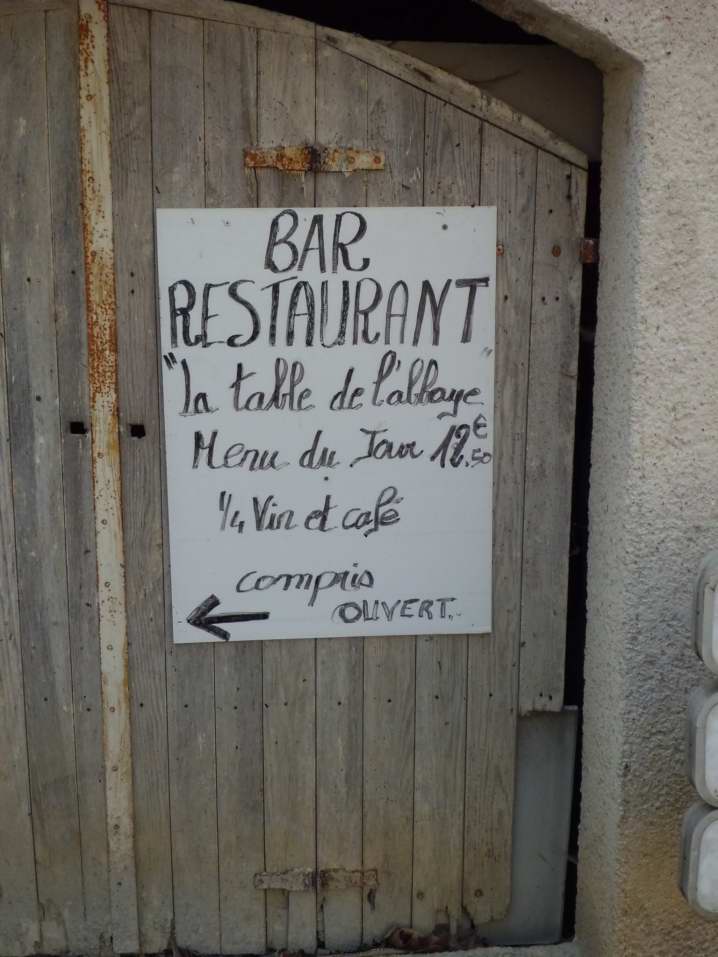 BAR
RESTAURANT
"La table de l'abbaye"
Menu du Jour 12€.50
1/4 Vin et café
compris
OUVERT.